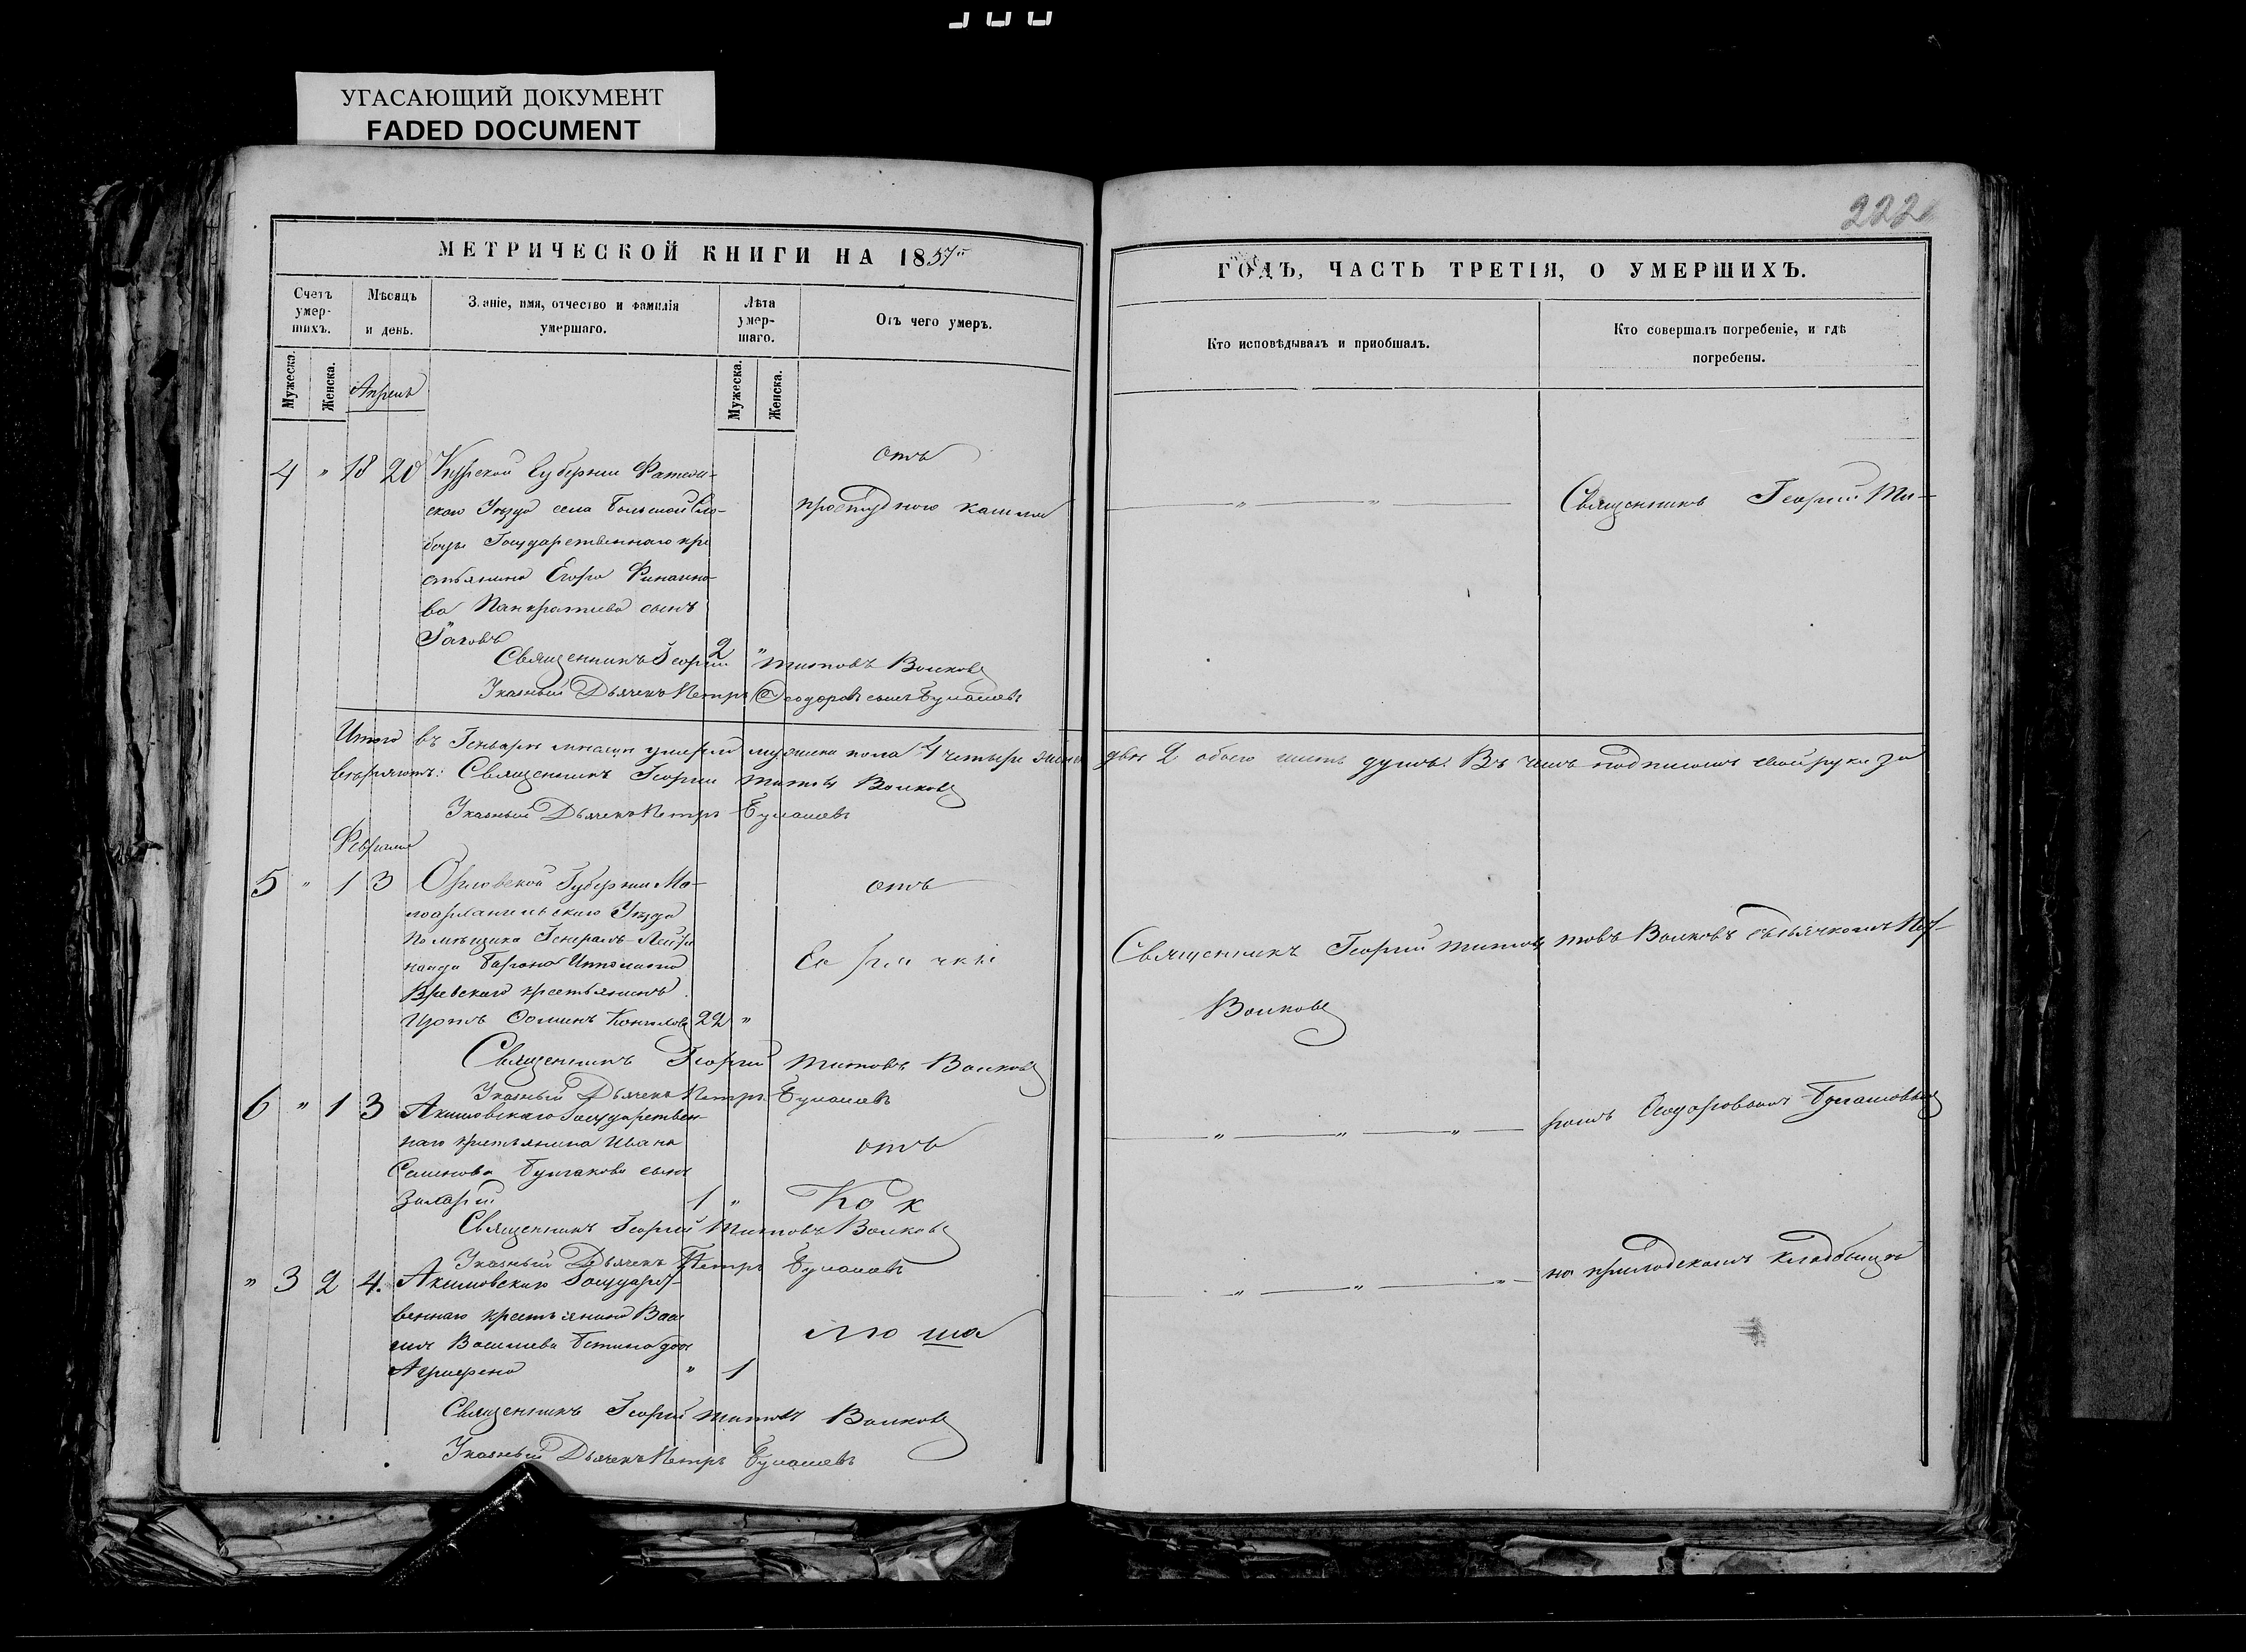 УГАСАЮЩИЙ ДОКУМЕНТ
FADED DOCUMENT
222
МЕТРИЧЕСКОЙ КНИГИ НА 1857
ГОДЪ, ЧАСТЬ ТРЕТІЯ, О УМЕРШИХЪ.
Счетъ умер-шихъ.
Мѣсяцъ и день.
Званіе, имя, отчество и фамилія умершаго.
Лѣта умер-шаго.
Отъ чего умеръ.
Кто исповѣдывалъ и пріобщалъ.
Кто совершалъ погребеніе, и гдѣ погребены.
Мужеска.
Женска.
Мужеска.
Женска.
4 " 18 20 Курской Губерніи Фатеж-
скаго Уѣзда села Большой Сло-
боды Государственнаго кре
стьянина Егора
ва Панкратова сынъ
Іаковъ 2 "
отъ
простуднаго кашля
Священникъ Георгій Ти-
Священникъ Георгій Титовъ Волковъ
Указный Дьячекъ Петръ Ѳеодоровъ сынъ
Итого въ Генварѣ мѣсяцѣ умерло мужеска пола 4 четыре женска двѣ 2 обоего шесть душъ. Въ чемъ подписомъ своихъ рукъ за
вѣряютъ: Священникъ Георгій Титовъ Волковъ
Указный Дьячекъ Петръ
Февраля
5 " 1 3 Орловской Губерніи Ма-
лоархангельскаго Уѣзда
помѣщика Генералъ-Лейте
нанта Барона Ипполита
Вревскаго крестьянинъ
22 "
отъ
горячки
Священникъ Георгій Титовъ
Волковъ
товъ Волковъ съ дьячкомъ Пет-
Священникъ Георгій Титовъ Волковъ
Указный Дьячекъ Петръ
6 " 1 3 Акимовскаго Государствен-
наго крестьянина Ивана
Семенова Булгакова сынъ
Захарій 1 "
отъ
Кок
ромъ Ѳеодоровымъ
Священникъ Георгій Титовъ Волковъ
Указный Дьячекъ Петръ
" 3 2 4. Акимовскаго Государст-
веннаго крестьянина Васи
лія Васильева дочь
Агрипена " 1
люша
на приходскомъ кладбищѣ
Священникъ Георгій Титовъ Волковъ
Указный Дьячекъ Петръ